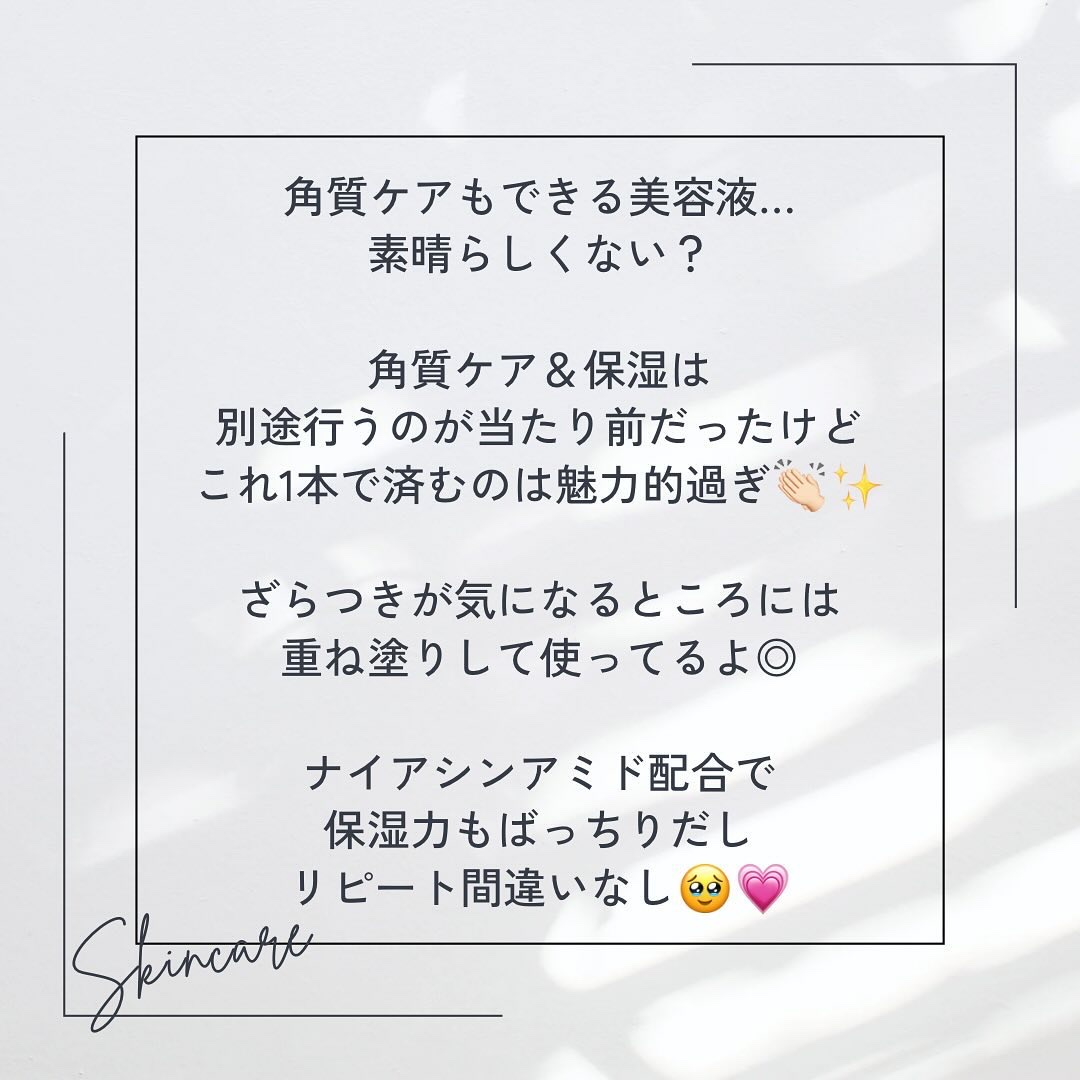 角質ケアもできる美容液...
素晴らしくない？
角質ケア＆保湿は
別途行うのが当たり前だったけど
これ1本で済むのは魅力的過ぎ👏🏻✨
ざらつきが気になるところには
重ね塗りして使ってるよ◎
ナイアシンアミド配合で
保湿力もばっちりだし
リピート間違いなし🥹💗
Skincare